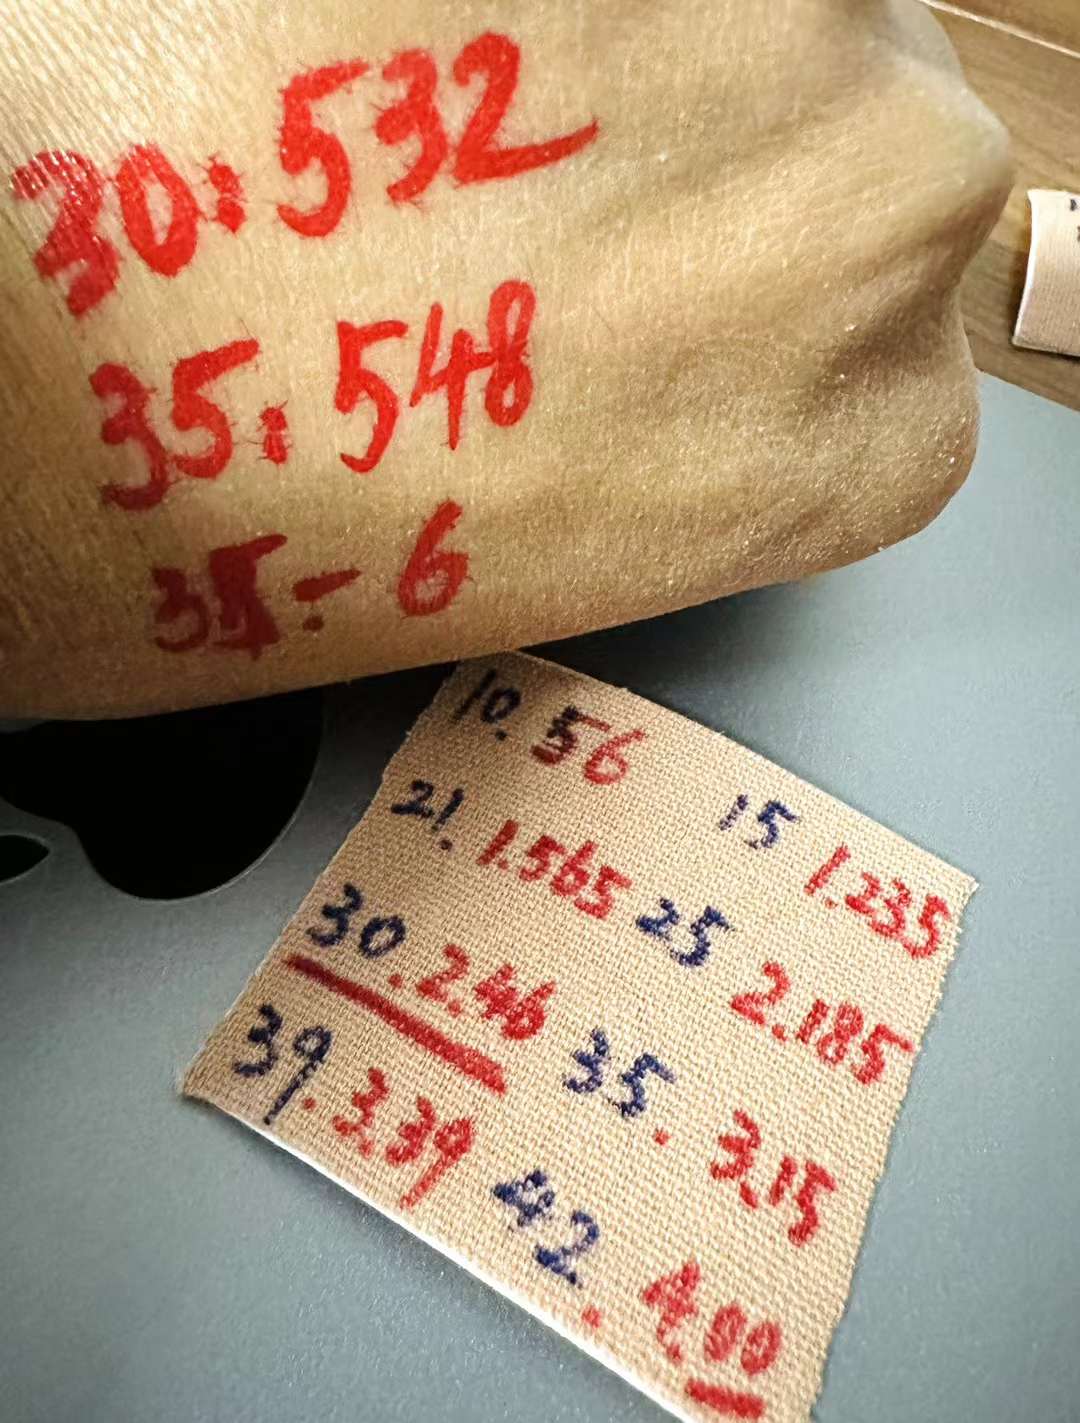 30:532
35:548
35:-6
10.56
15 1.235
21. 1.565
25 2.185
30.2.46
35. 3.15
39.3.39
42. 4.00